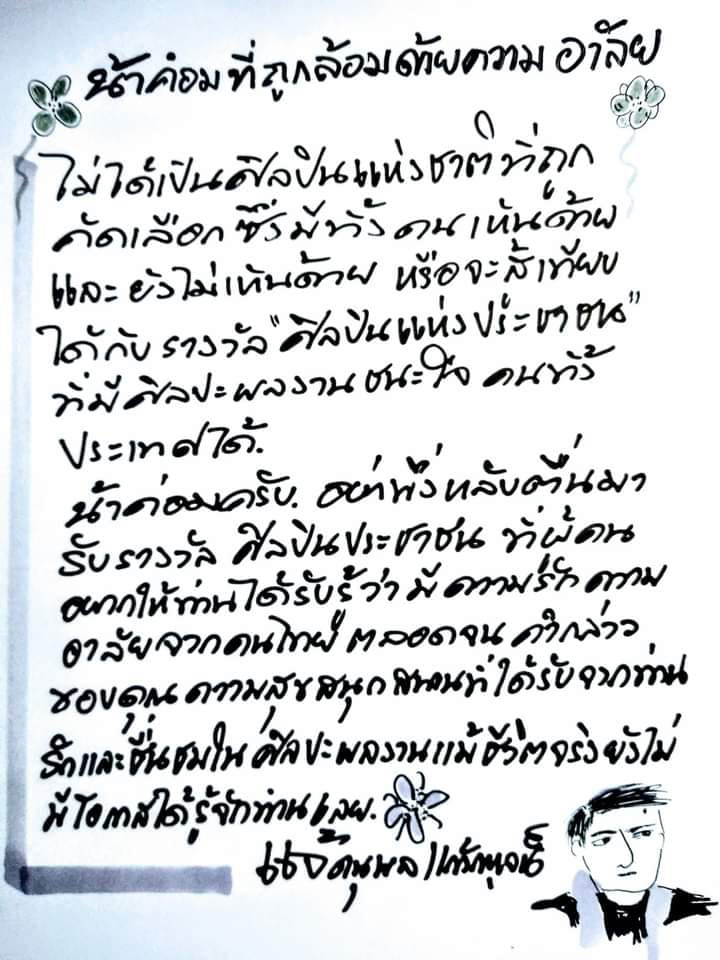 น้าค่อมที่ถูกล้อมด้วยความอาลัย
ไม่ได้เป็นศิลปินแห่งชาติที่ถูก
คัดเลือก ซึ่งมีทั้งคนเห็นด้วย
และยังไม่เห็นด้วย หรือจะสู้เทียบ
ได้กับรางวัล "ศิลปินแห่งประชาชน"
ที่มีศิลปะผลงานชนะใจ คนทั้ง
ประเทศได้.
น้าค่อมครับ. อย่าพึ่งหลับตื่นมา
รับรางวัล ศิลปินประชาชน ที่ผู้คน
อยากให้ท่านได้รับรู้ว่า มีความรักความ
อาลัยจากคนไทย ตลอดจน คำกล่าว
ขอบคุณ ความสุขสนุกสนานที่ได้รับจากท่าน
รักและชื่นชมในศิลปะผลงานแม้ชีวิตจริงยังไม่
มีโอกาสได้รู้จักท่านเลย.